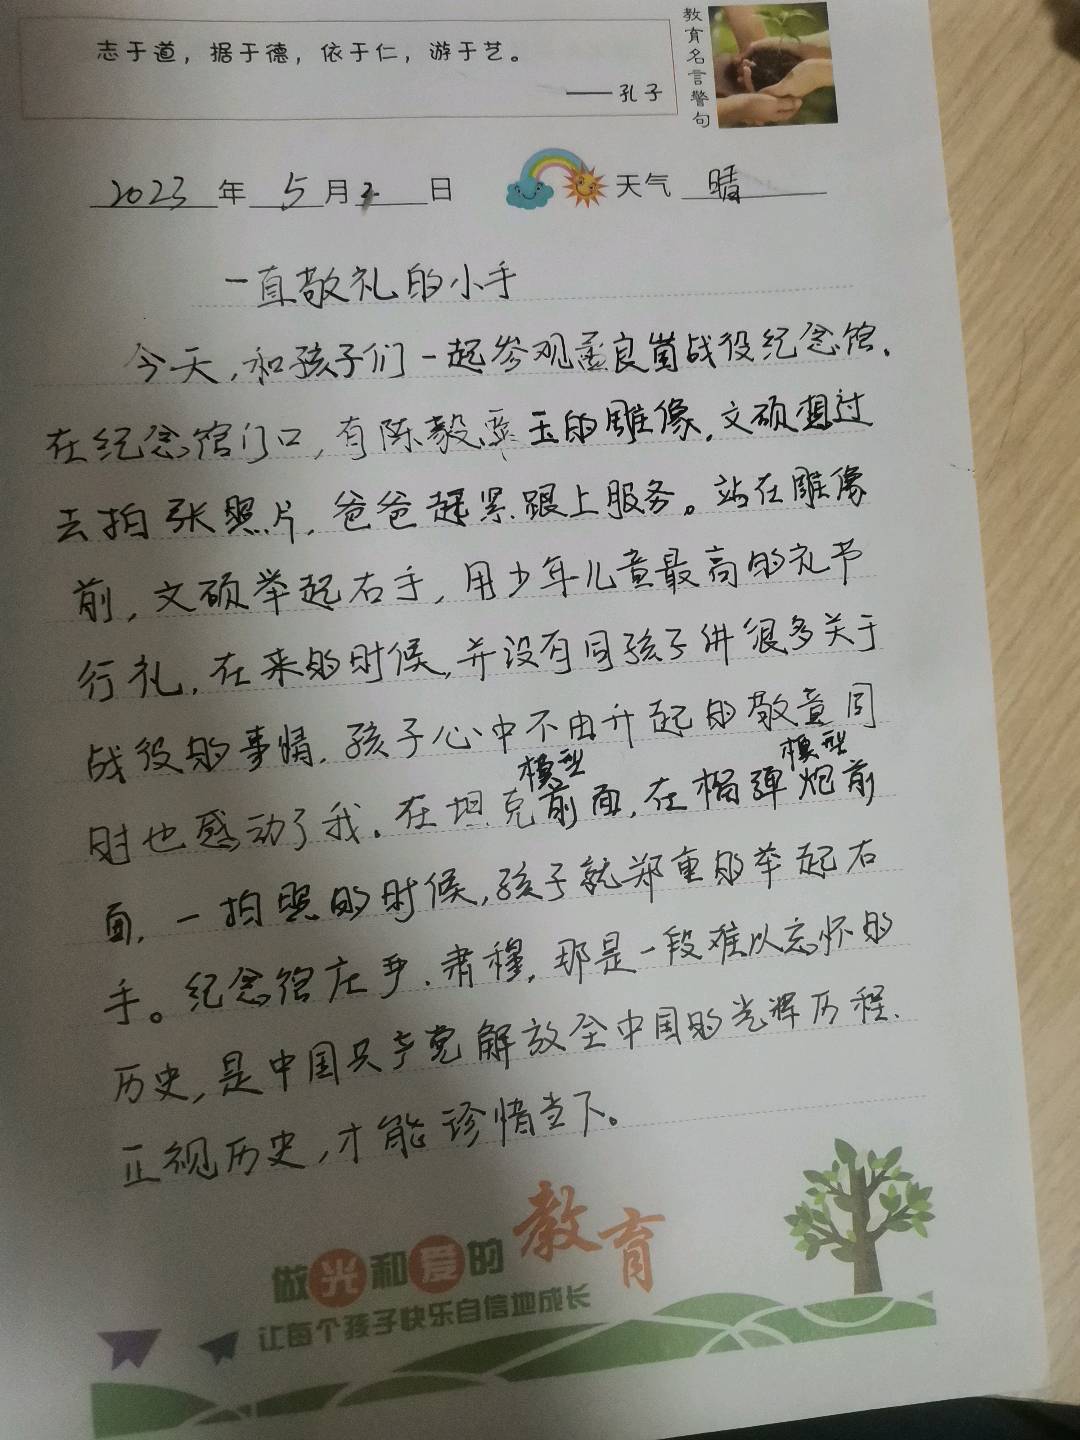 志于道，据于德，依于仁，游于艺。
——孔子
教育名言警句
2023年5月2日
天气 晴
一直敬礼的小手
今天，和孩子们一起参观孟良崮战役纪念馆，
在纪念馆门口，有陈毅、粟玉的雕像，文硕想过
去拍张照片，爸爸赶紧跟上服务。站在雕像
前，文硕举起右手，用少年儿童最高的礼节
行礼，在来的时候，并没有同孩子讲很多关于
战役的事情，孩子心中不由升起的敬意同
模型 模型
时也感动了我。在坦克前面，在榴弹炮前
面，一拍照的时候，孩子就郑重的举起右
手。纪念馆庄严、肃穆，那是一段难以忘怀的
历史，是中国共产党解放全中国的光辉历程、
正视历史，才能珍惜当下。
做光和爱的教育
让每个孩子快乐自信地成长